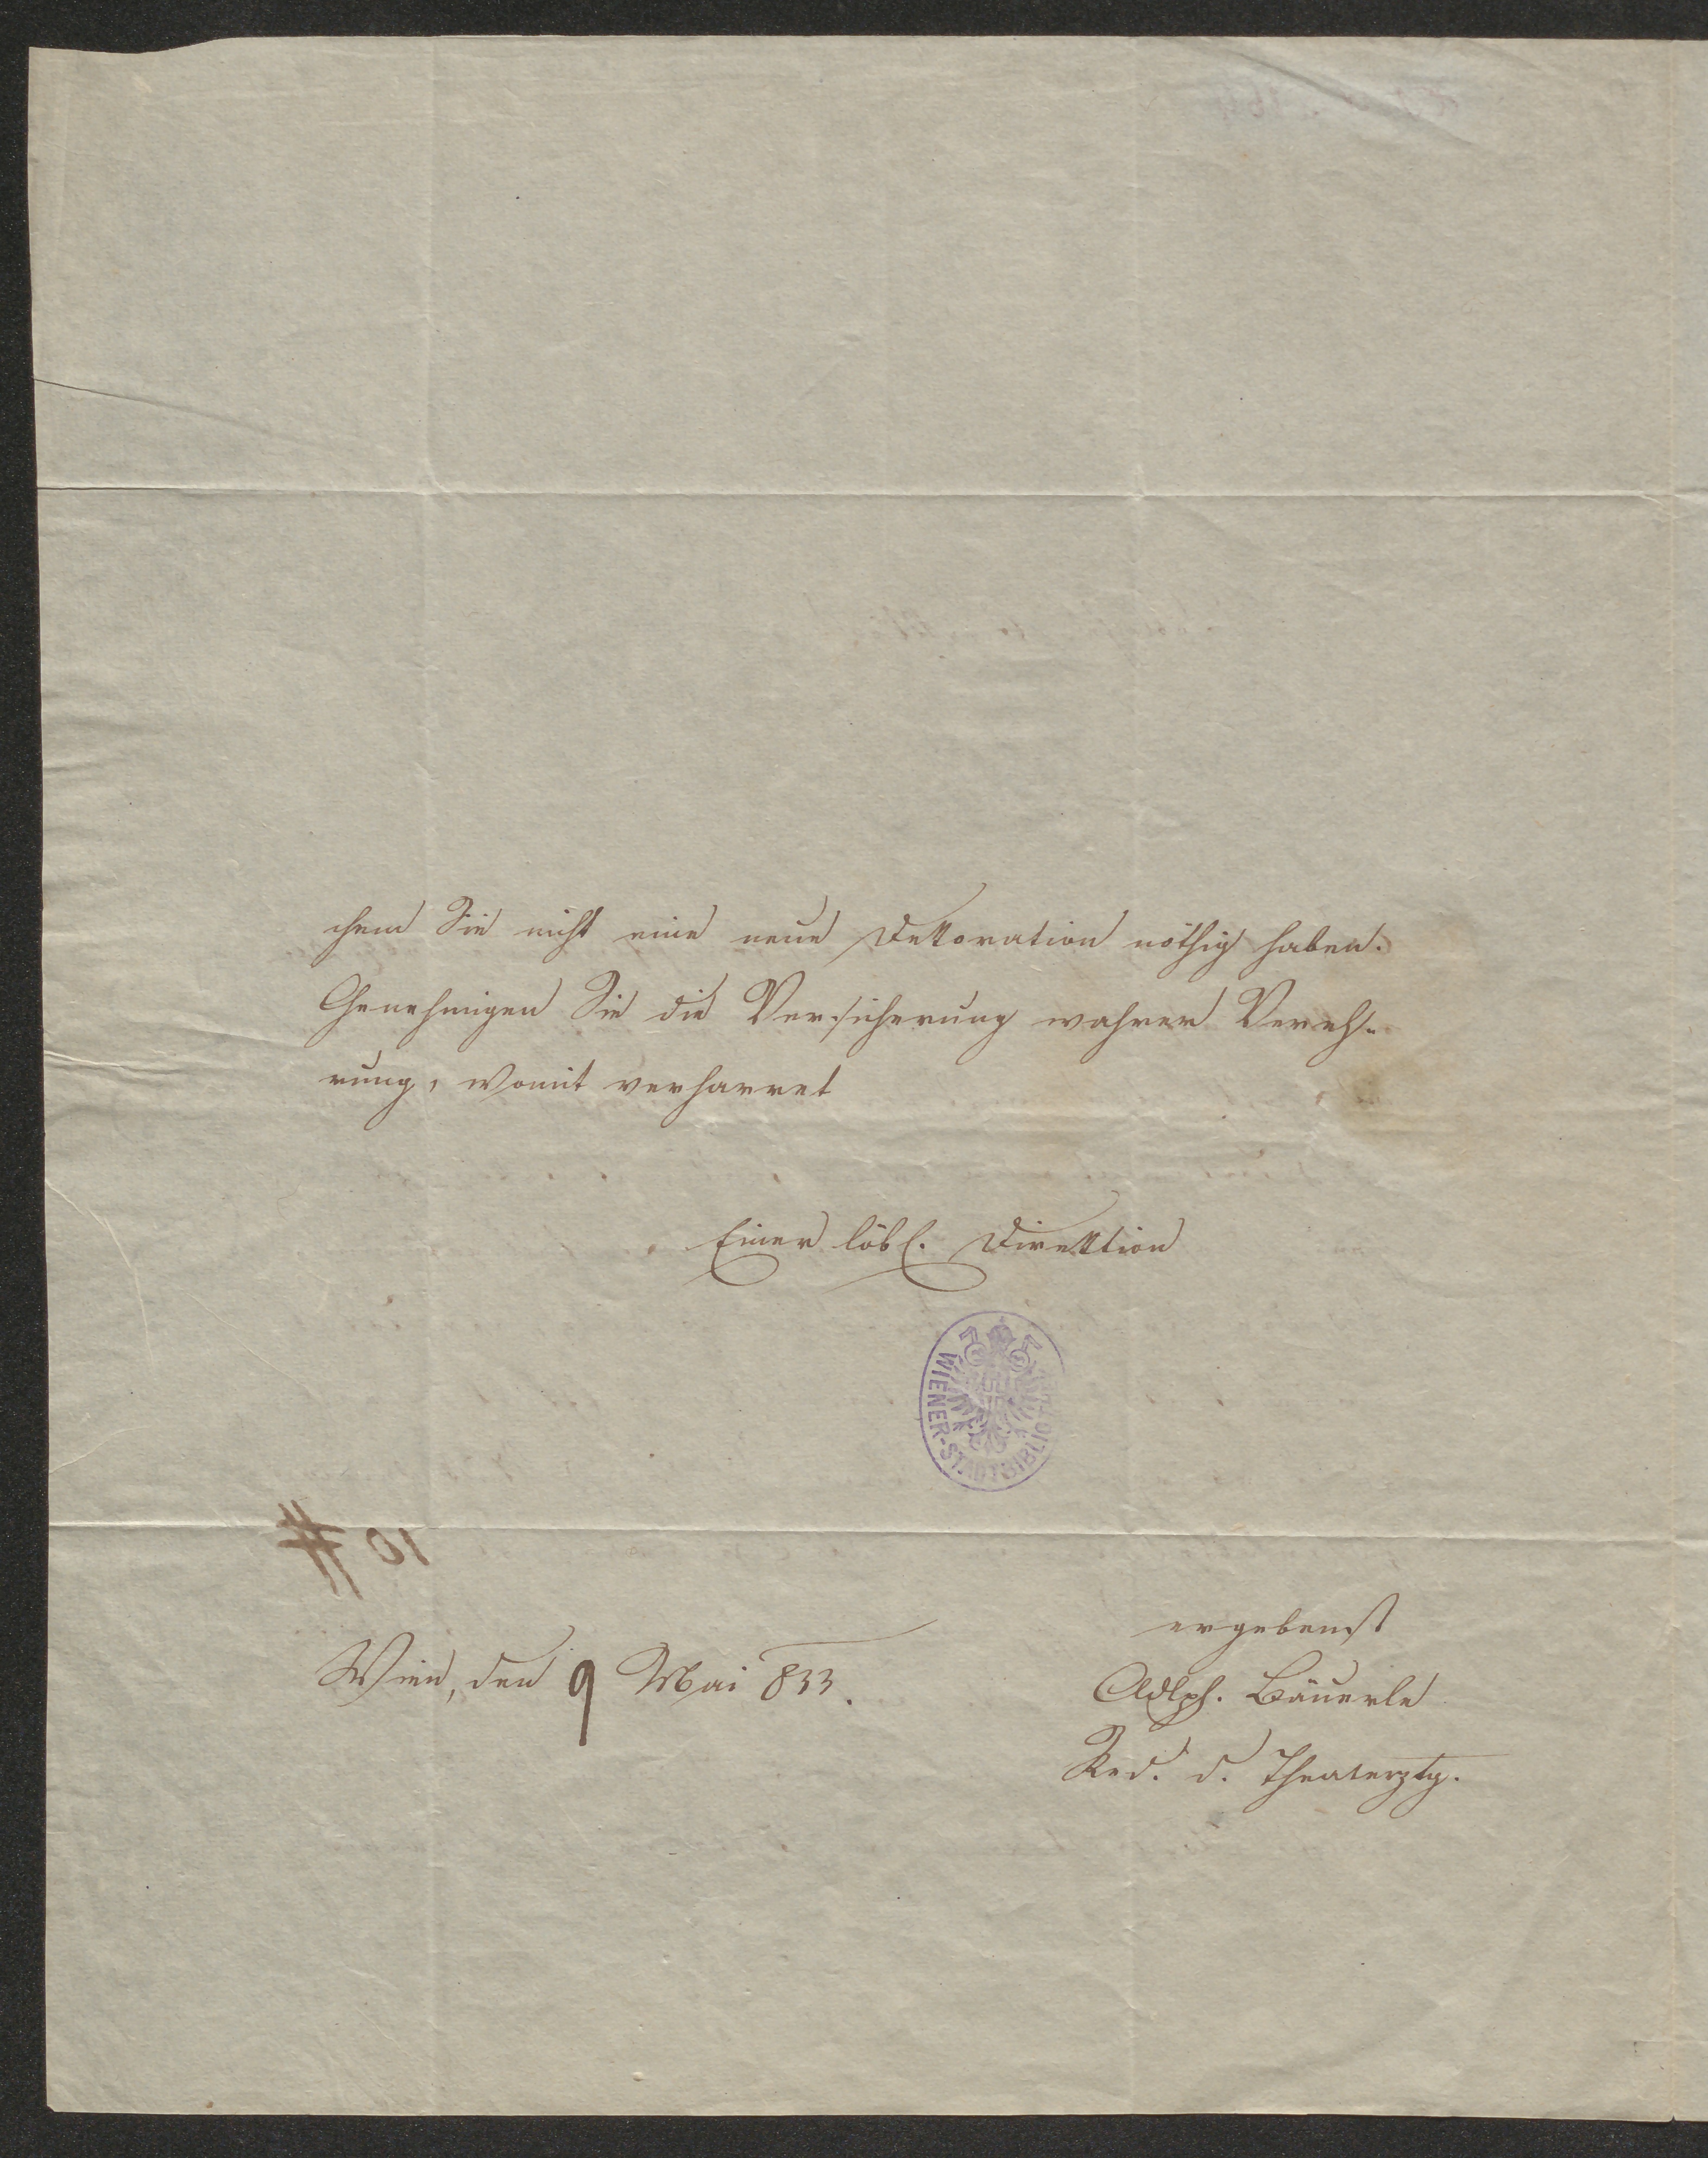 chem Sie nicht eine neue Dekoration nöthig haben.
Genehmigen Sie die Versicherung wahrer Vereh-
rung, womit verharret
Einer löbl. Direktion
WIENER-STADTBIBLIOTHEK
10 #
ergebenst
Wien, den 9 Mai 833.
Adlph. Bäuerle
Red. d. Theaterztg.